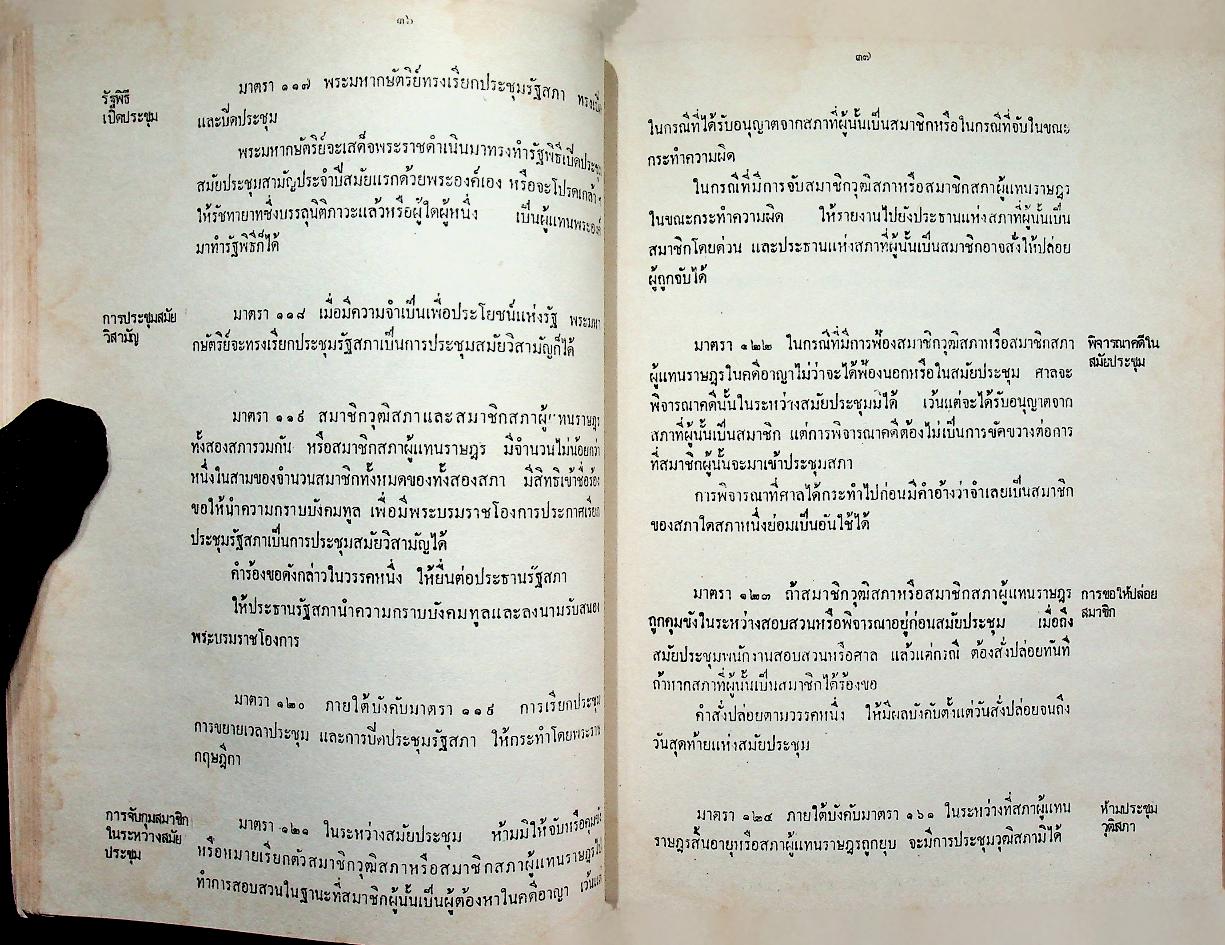 ๓๖
รัฐพิธี
เปิดประชุม
มาตรา ๑๑๗ พระมหากษัตริย์ทรงเรียกประชุมรัฐสภา ทรงเปิด
และปิดประชุม
พระมหากษัตริย์จะเสด็จพระราชดำเนินมาทรงทำรัฐพิธีเปิดประชุม
สมัยประชุมสามัญประจำปีสมัยแรกด้วยพระองค์เอง หรือจะโปรดเกล้า ฯ
ให้รัชทายาทซึ่งบรรลุนิติภาวะแล้วหรือผู้ใดผู้หนึ่ง เป็นผู้แทนพระองค์
มาทำรัฐพิธีก็ได้
การประชุมสมัย
วิสามัญ
มาตรา ๑๑๘ เมื่อมีความจำเป็นเพื่อประโยชน์แห่งรัฐ พระมหา
กษัตริย์จะทรงเรียกประชุมรัฐสภาเป็นการประชุมสมัยวิสามัญก็ได้
มาตรา ๑๑๙ สมาชิกวุฒิสภาและสมาชิกสภาผู้แทนราษฎร
ทั้งสองสภารวมกัน หรือสมาชิกสภาผู้แทนราษฎร มีจำนวนไม่น้อยกว่า
หนึ่งในสามของจำนวนสมาชิกทั้งหมดของทั้งสองสภา มีสิทธิเข้าชื่อร้อง
ขอให้นำความกราบบังคมทูล เพื่อมีพระบรมราชโองการประกาศเรียก
ประชุมรัฐสภาเป็นการประชุมสมัยวิสามัญได้
คำร้องขอดังกล่าวในวรรคหนึ่ง ให้ยื่นต่อประธานรัฐสภา
ให้ประธานรัฐสภานำความกราบบังคมทูลและลงนามรับสนอง
พระบรมราชโองการ
มาตรา ๑๒๐ ภายใต้บังคับมาตรา ๑๑๙ การเรียกประชุม
การขยายเวลาประชุม และการปิดประชุมรัฐสภา ให้กระทำโดยพระราช
กฤษฎีกา
การจับกุมสมาชิก
ในระหว่างสมัย
ประชุม
มาตรา ๑๒๑ ในระหว่างสมัยประชุม ห้ามมิให้จับหรือคุมขัง
หรือหมายเรียกตัวสมาชิกวุฒิสภาหรือสมาชิกสภาผู้แทนราษฎรไป
ทำการสอบสวนในฐานะที่สมาชิกผู้นั้นเป็นผู้ต้องหาในคดีอาญา เว้นแต่
๓๗
ในกรณีที่ได้รับอนุญาตจากสภาที่ผู้นั้นเป็นสมาชิกหรือในกรณีที่จับในขณะ
กระทำความผิด
ในกรณีที่มีการจับสมาชิกวุฒิสภาหรือสมาชิกสภาผู้แทนราษฎร
ในขณะกระทำความผิด ให้รายงานไปยังประธานแห่งสภาที่ผู้นั้นเป็น
สมาชิกโดยด่วน และประธานแห่งสภาที่ผู้นั้นเป็นสมาชิกอาจสั่งให้ปล่อย
ผู้ถูกจับได้
มาตรา ๑๒๒ ในกรณีที่มีการฟ้องสมาชิกวุฒิสภาหรือสมาชิกสภา
ผู้แทนราษฎรในคดีอาญาไม่ว่าจะได้ฟ้องนอกหรือในสมัยประชุม ศาลจะ
พิจารณาคดีนั้นในระหว่างสมัยประชุมมิได้ เว้นแต่จะได้รับอนุญาตจาก
สภาที่ผู้นั้นเป็นสมาชิก แต่การพิจารณาคดีต้องไม่เป็นการขัดขวางต่อการ
ที่สมาชิกผู้นั้นจะมาเข้าประชุมสภา
การพิจารณาที่ศาลได้กระทำไปก่อนมีคำอ้างว่าจำเลยเป็นสมาชิก
ของสภาใดสภาหนึ่งย่อมเป็นอันใช้ได้
พิจารณาคดีใน
สมัยประชุม
มาตรา ๑๒๓ ถ้าสมาชิกวุฒิสภาหรือสมาชิกสภาผู้แทนราษฎร
ถูกคุมขังในระหว่างสอบสวนหรือพิจารณาอยู่ก่อนสมัยประชุม เมื่อถึง
สมัยประชุมพนักงานสอบสวนหรือศาล แล้วแต่กรณี ต้องสั่งปล่อยทันที
ถ้าหากสภาที่ผู้นั้นเป็นสมาชิกได้ร้องขอ
คำสั่งปล่อยตามวรรคหนึ่ง ให้มีผลบังคับตั้งแต่วันสั่งปล่อยจนถึง
วันสุดท้ายแห่งสมัยประชุม
การขอให้ปล่อย
สมาชิก
มาตรา ๑๒๔ ภายใต้บังคับมาตรา ๑๖๑ ในระหว่างที่สภาผู้แทน
ราษฎรสิ้นอายุหรือสภาผู้แทนราษฎรถูกยุบ จะมีการประชุมวุฒิสภามิได้
ห้ามประชุม
วุฒิสภา